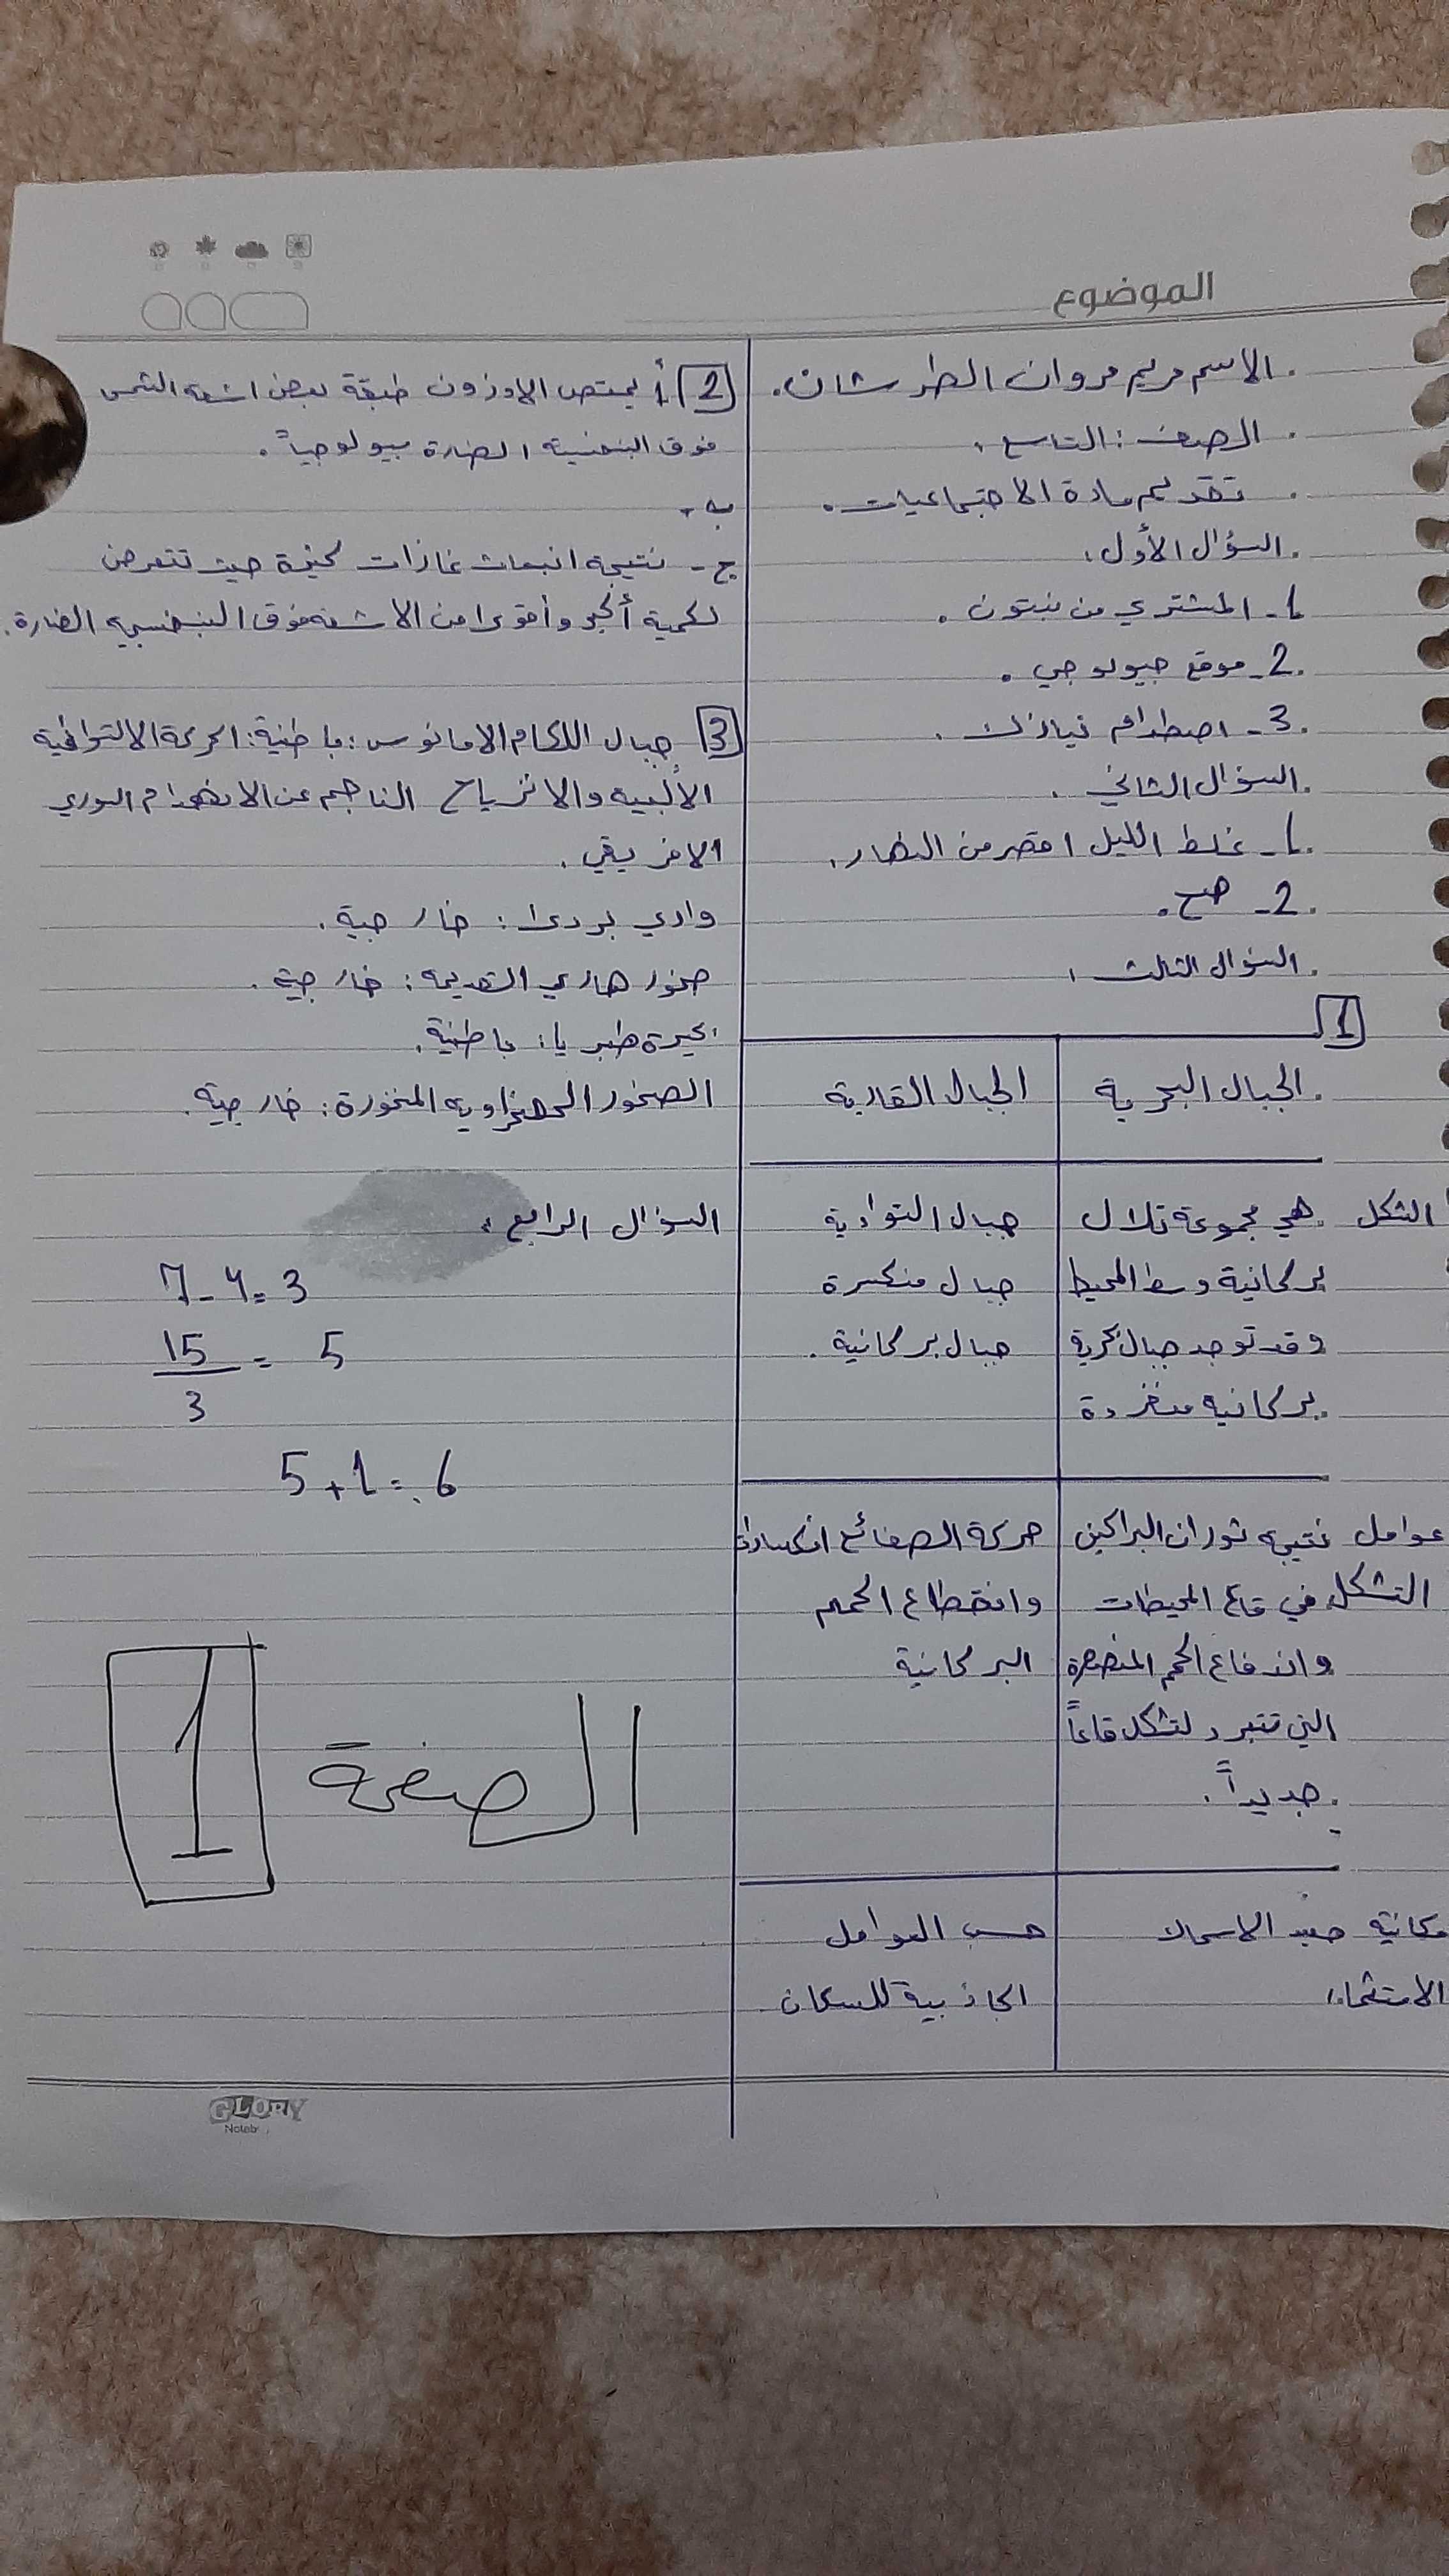 الموضوع
الاسم مريم مروان الطرشان.
الصف: التاسع.
تقديم مادة الاجتماعيات.
السؤال الأول:
1- المشتري من نبتون.
2- موقع جيولوجي.
3- اصطدام نيازك.
السؤال الثاني.
1- غلط الليل اقصر من النهار.
2- صح.
السؤال الثالث:
1
الجبال البحرية الجبال القارية
الشكل هي مجموعة تلال جبال التوائية
بركانية وسط المحيط جبال منكسرة
وقد توجد جبال بحرية جبال بركانية.
بركانية منفردة
عوامل نتيجه ثوران البراكين حركة الصفائح انكسارات
التشكل في قاع المحيطات وانقطاع الحمم
واندفاع الحمم المنصهرة البركانية
التي تتبرد لتشكل قاعاً
جديداً.
مكانية صيد الاسماك حسب العوامل
الاستثمار الجاذبية للسكان
2 أ يمتص الاوزون طبقة بعض اشعه الشمس
فوق البنفسيه الضارة بيولوجياً.
ب-
ج- نتيجه انبعاث غازات حيث تتعرض
لكمية أكبر وأقوى من الاشعه فوق البنفسجيه الضارة.
3 جبال اللكام الامانوس: باطنية: الحركة الالتوائية
الألبية والانزياح الناجم عن الانهدام السوري
الافريقي.
وادي بردى: خارجية.
صخور هاري القديمه: خارجية.
بحيرة طبريا: باطنية.
الصخور الصحراويه المنخورة: خارجية.
السؤال الرابع:
7-4=3
15/3 = 5
5+1=6
الصفحة 1
GLORY
Noteb